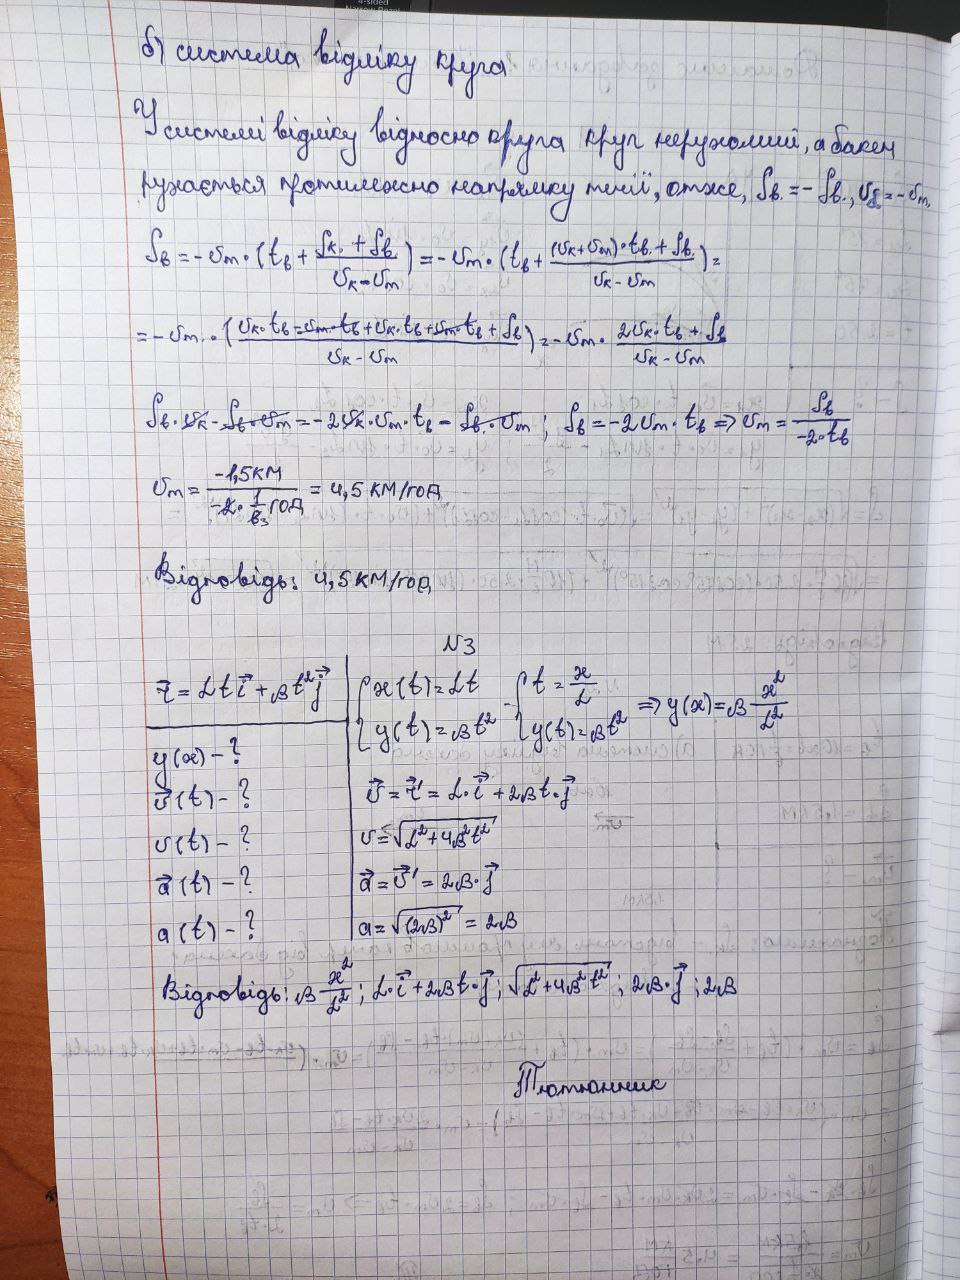 б) система відліку круга
У системі відліку відносно круга круг нерухомий, а бакен
рухається протилежно напрямку течії, отже, S_в. = -S_в., υ_б. = -υ_т.
S_в = -υ_т · (t_в + (S_к. + S_в.)/(υ_к - υ_т)) = -υ_т · (t_в + ((υ_к + υ_т) · t_в. + S_в.)/(υ_к - υ_т)) =
= -υ_т. · ((υ_к · t_в - υ_т · t_в + υ_к · t_в + υ_т · t_в + S_в)/(υ_к - υ_т)) = -υ_т · (2υ_к · t_в + S_в)/(υ_к - υ_т)
S_в · υ_к - S_в · υ_т = -2υ_к · υ_т · t_в - S_в · υ_т ; S_в = -2υ_т · t_в ⇒ υ_т = S_в/(-2 · t_в)
υ_т = (-1,5 км)/(-2 · 1/6 3 год) = 4,5 км/год
Відповідь: 4,5 км/год
N3
r⃗ = αt i⃗ + βt² j⃗
y(x) - ?
υ⃗(t) - ?
υ(t) - ?
a⃗(t) - ?
a(t) - ?
{x(t) = αt {t = x/α
{y(t) = βt² {y(t) = βt² ⇒ y(x) = β x²/α²
υ⃗ = r⃗' = α · i⃗ + 2βt · j⃗
υ = √(α² + 4β²t²)
a⃗ = υ⃗' = 2β · j⃗
a = √((2β)²) = 2β
Відповідь: β x²/α² ; α · i⃗ + 2βt · j⃗ ; √(α² + 4β²t²) ; 2β · j⃗ ; 2β
Тютюнник